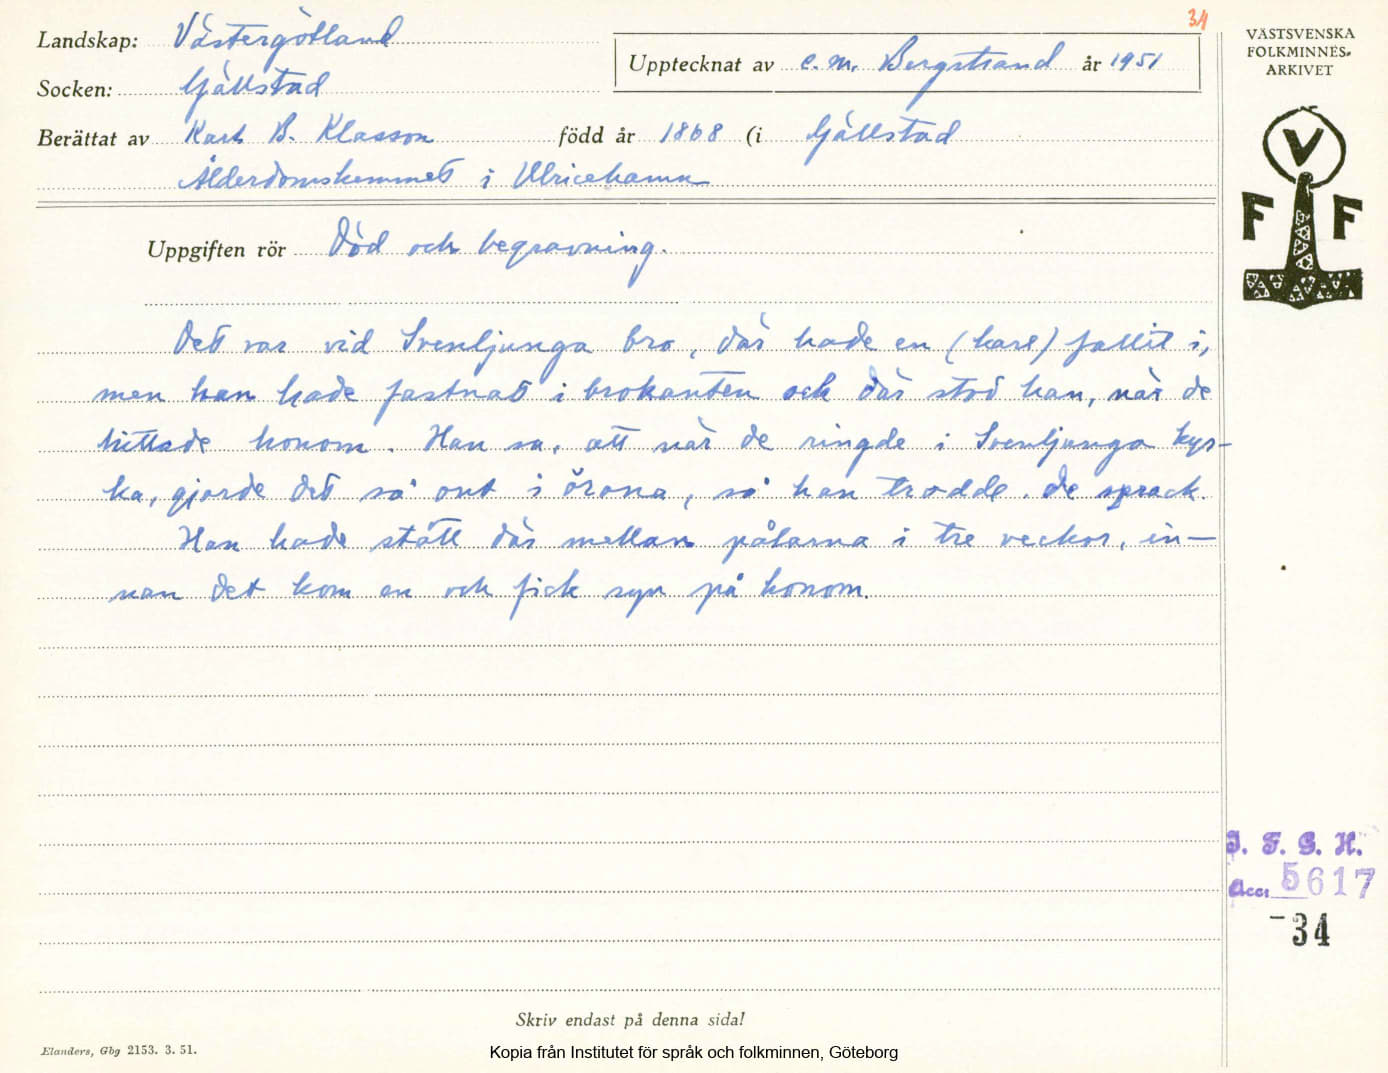 34
Landskap: Västergötland
Upptecknat av C. M. Bergstrand år 1951
Socken: Gällstad
Berättat av Karl B. Klasson född år 1868 (i Gällstad
Ålderdomshemmet i Ulricehamn
Uppgiften rör Död och begravning.
Det var vid Svenljunga bro, där hade en (karl) fallit i,
men han hade fastnat i brokanten och där stod han, när de
hittade honom. Han sa, att när de ringde i Svenljunga kyr-
ka, gjorde det så ont i örona, så han trodde, de sprack.
Han hade stått där mellan pålarna i tre veckor, in-
nan det kom en och fick syn på honom.
Skriv endast på denna sida!
Elanders, Gbg 2153. 3. 51.
Kopia från Institutet för språk och folkminnen, Göteborg
VÄSTSVENSKA
FOLKMINNES-
ARKIVET
V
F F
I. F. G. H.
Acc. 5617
-34